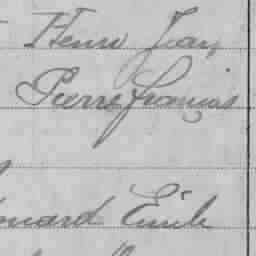 Henri Jean
Pierre François
Emile